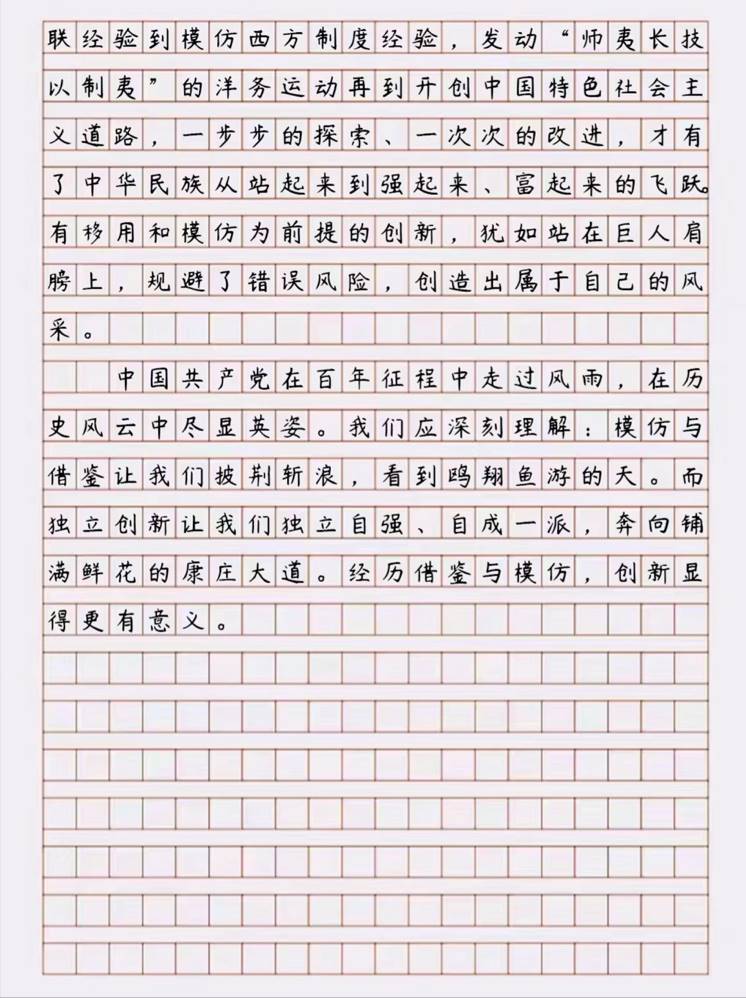 联经验到模仿西方制度经验，发动“师夷长技
以制夷”的洋务运动再到开创中国特色社会主
义道路，一步步的探索、一次次的改进，才有
了中华民族从站起来到强起来、富起来的飞跃。
有移用和模仿为前提的创新，犹如站在巨人肩
膀上，规避了错误风险，创造出属于自己的风
采。
中国共产党在百年征程中走过风雨，在历
史风云中尽显英姿。我们应深刻理解：模仿与
借鉴让我们披荆斩浪，看到鸥翔鱼游的天。而
独立创新让我们独立自强、自成一派，奔向铺
满鲜花的康庄大道。经历借鉴与模仿，创新显
得更有意义。